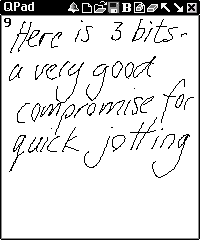 QPad
9
Here is 3 bits-
a very good
compromise for
quick jotting